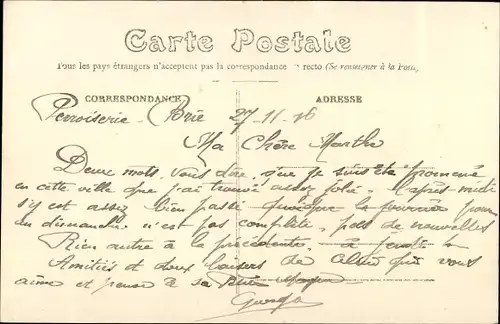 Carte Postale
Tous les pays étrangers n'acceptent pas la correspondance recto (Se renseigner à la Poste)
CORRESPONDANCE
ADRESSE
Brie 27-11-16
Ma Chère Marthe
Deux mots vous dire que je suis été promené
en cette ville que j'ai trouvé assez jolie. L'après-midi
s'y est assez bien passé quoique la journée pour
un dimanche n'est pas complète, pas de nouvelles
Rien autre à la précédente. à
Amitiés et doux baisers de celui qui vous
aime et pense à sa